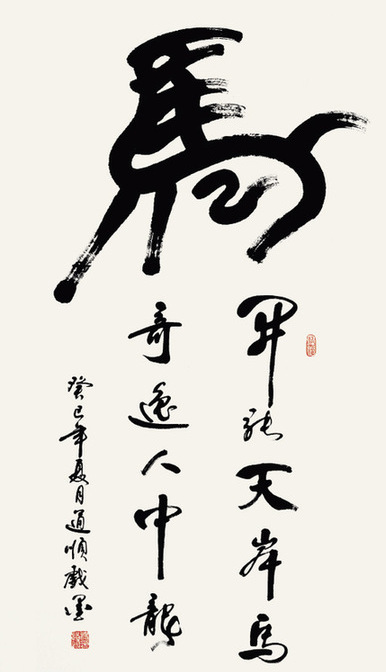 馬
開張天岸馬
奇逸人中龍
癸巳年夏月通順戲墨